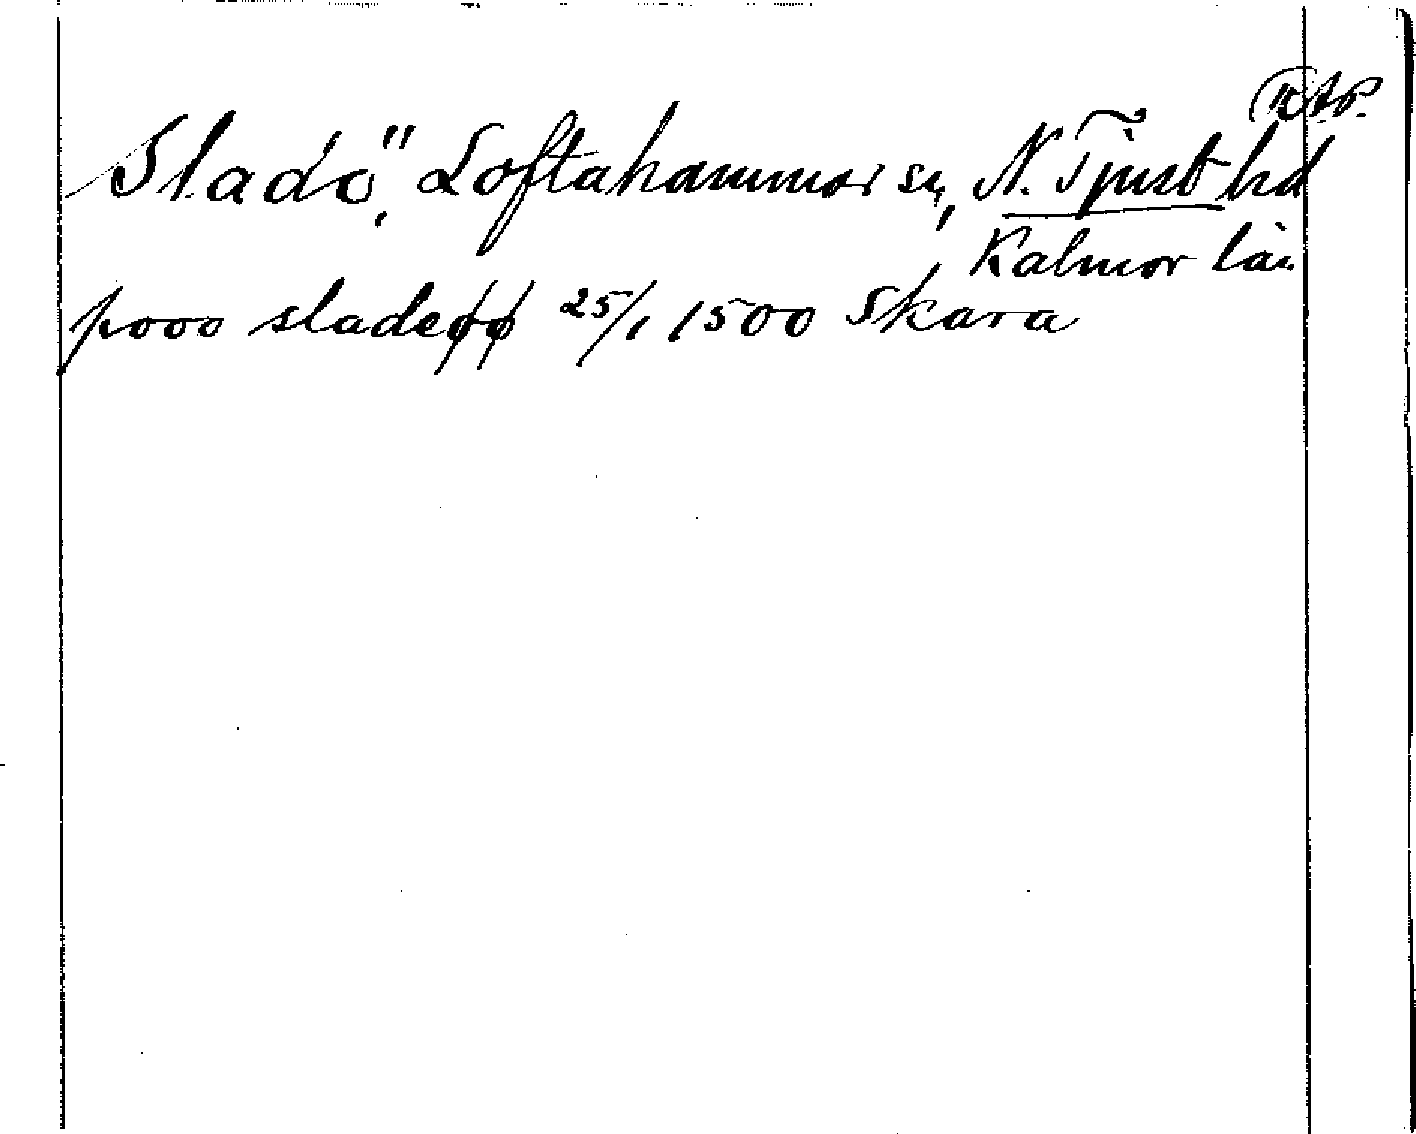 RAP.
Sladö, Loftahammar sn, N. Tjust hd
Kalmar län
pooo sladeøø 25/1 1500 Skara